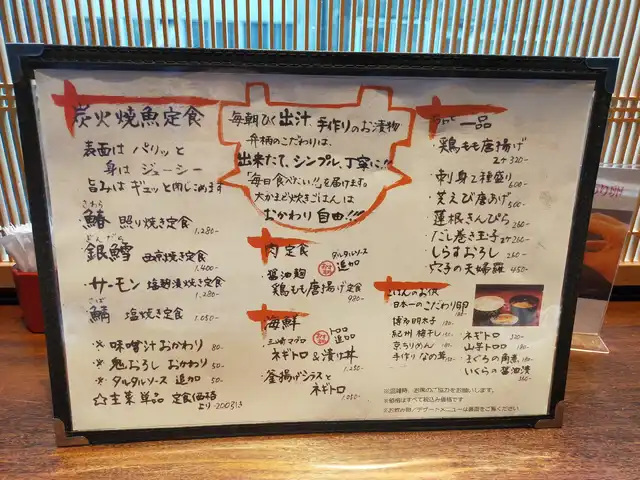 炭火焼魚定食
表面は パリッと
身は ジューシー
旨みは ギュッと閉じこめます
さわら
鰆 照り焼き定食 1,280-
ぎんだら
銀鱈 西京焼き定食 1,400-
サーモン 塩麹漬焼き定食 1,280-
さば
鯖 塩焼き定食 1,050-
※ 味噌汁おかわり 80-
※ 鬼おろし おかわり 50-
※ タルタルソース 追加 50-
☆ 主菜 単品 定食価格より -200引き
毎朝ひく出汁、手作りのお漬物
弁柄のこだわりは、
出来たて、シンプル、丁寧に!!
「毎日食べたい!!」を届けます。
大かまど炊きごはんは
おかわり 自由!!!
肉定食
タルタルソース
追加
醤油麹
鶏もも唐揚げ定食 980-
海鮮
トロロ
追加
三崎マグロ
ネギトロ & 漬け丼 1,180-
釜揚げシラスと
ネギトロ 1,050-
一品
・鶏もも唐揚げ 2ヶ 320-
・刺身2種盛り 600-
・芝えび唐あげ 500-
・蓮根きんぴら 260-
・だし巻き玉子 2ヶ 250-
・しらすおろし 260-
・穴子の天婦羅 450-
ごはんのお供
日本一のこだわり卵
博多明太子 180-
紀州 梅干し
京ちりめん
手作り なめ茸
ネギトロ 320-
山芋トロロ 180-
まぐろの角煮
いくらの醤油漬 360-
※混雑時、お席のご協力をお願いします。
※価格はすべて税込み価格です
※お飲み物/デザートメニューは裏面をご覧ください